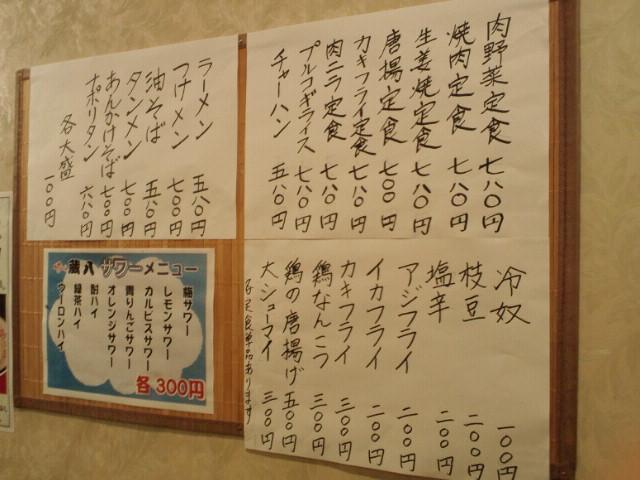 肉野菜定食 七八〇円
焼肉定食 七八〇円
生姜焼定食 七八〇円
唐揚定食 七〇〇円
カキフライ定食 七八〇円
肉ニラ定食 七八〇円
プルコギライス 七八〇円
チャーハン 五八〇円
ラーメン 五八〇円
つけメン 七〇〇円
油そば 五八〇円
タンメン 七〇〇円
あんかけそば 七〇〇円
ナポリタン 六八〇円
各大盛 一〇〇円
冷奴 一〇〇円
枝豆 二〇〇円
塩辛 二〇〇円
アジフライ 二〇〇円
イカフライ 二〇〇円
カキフライ 三〇〇円
鶏なんこつ 三〇〇円
鶏の唐揚げ 五〇〇円
大シューマイ 三〇〇円
各定食単品あります
蔵八 サワーメニュー
梅サワー
レモンサワー
カルピスサワー
青りんごサワー
オレンジサワー
酎ハイ
緑茶ハイ
ウーロンハイ
各300円